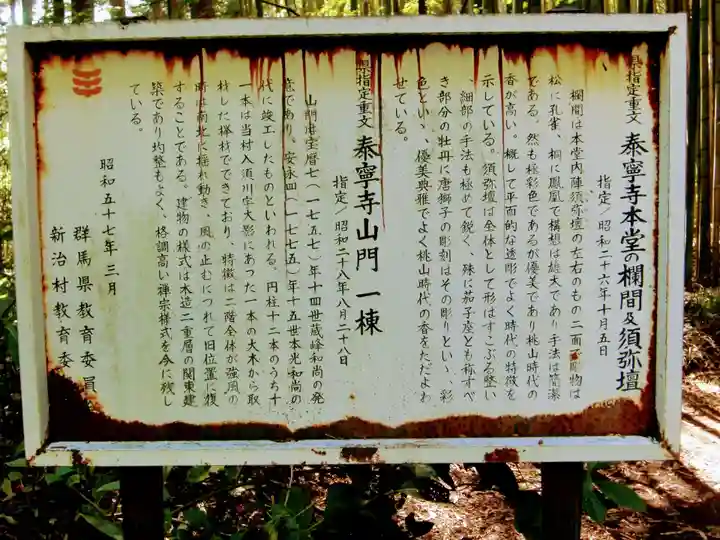 県指定重文 泰寧寺本堂の欄間及須弥壇
指定/昭和二十六年十月五日
欄間は本堂内陣須弥壇の左右のもの二面 彫物は
松に孔雀、桐に鳳凰で構想は雄大であり手法は簡潔
である。然も極彩色であるが優美であり桃山時代の
香が高い。概して平面的な透彫でよく時代の特徴を
示している。須弥壇は全体として形はすこぶる整い
、細部の手法も極めて鋭く、殊に茄子座とも称すべ
き部分の牡丹に唐獅子の彫刻はその彫りといゝ、彩
色といゝ、優美典雅でよく桃山時代の香をただよわ
せている。
県指定重文 泰寧寺山門 一棟
指定/昭和二十八年八月二十八日
山門は宝暦七(一七五七)年十四世蔵峰和尚の発
意であり、安永四(一七七五)年十五世本光和尚の
代に竣工したものといわれる。円柱十二本のうち十
一本は当村入須川字大影にあった一本の大木から取
材した欅材でできており、特徴は二階全体が強風の
時は南北に揺れ動き、風の止むにつれて旧位置に復
することである。建物の様式は木造二重層の関東建
築であり均整もよく、格調高い禅宗様式を今に残し
ている。
昭和五十七年三月
群馬県教育委員
新治村教育委